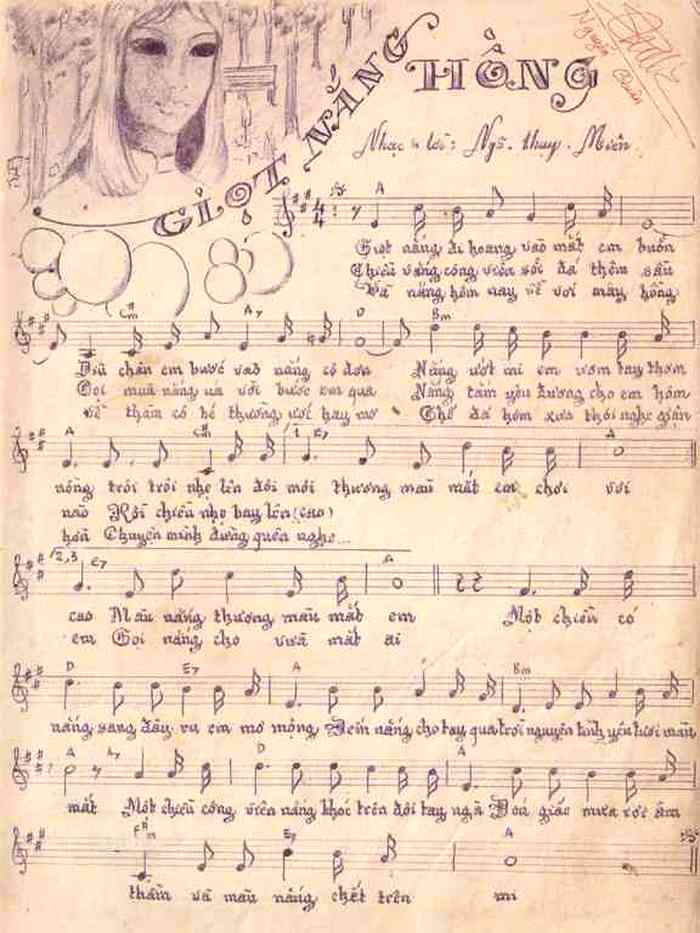 GIỌT NẮNG HỒNG
Nguyễn
Nhạc & lời: Ngô.thụy.Miên
A
Giọt nắng đi hoang vào mắt em buồn
Chiều vàng công viên sỏi đá thêm sầu
Và nắng hôm nay về với mây hồng
C#m A7 D Bm
Dìu chân em bước vào nắng cô đơn Nắng ướt mi em ươm tay thơm
Gọi mưa nắng ưa với bước em qua Nắng tắm yêu đương cho em hôm
về thăm cô bé thương ướt hay mơ Ghế đá hôm xưa thôi nghe giận
A C#m 1 E7 A
nồng trôi trôi nhẹ lên đôi môi thương màu mắt em chơi vơi
nào Rồi chiều nhẹ bay lên (cao)
hờn Chuyện mình đừng quên nghe...
2,3 E7 A
cao Màu nắng thương màu mắt em Một chiều có
em Gọi nắng cho vừa mắt ai
D E7 A Bm
nắng sang đây ru em mơ mộng Đem nắng cho tay qua trời nguyên tình yêu tươi màu
A A7 D A
mắt Một chiều công viên nắng khóc trên đôi tay ngà Đoá giấc mưa rơi âm
F#m E7 A
thầm và màu nắng chết trên mi